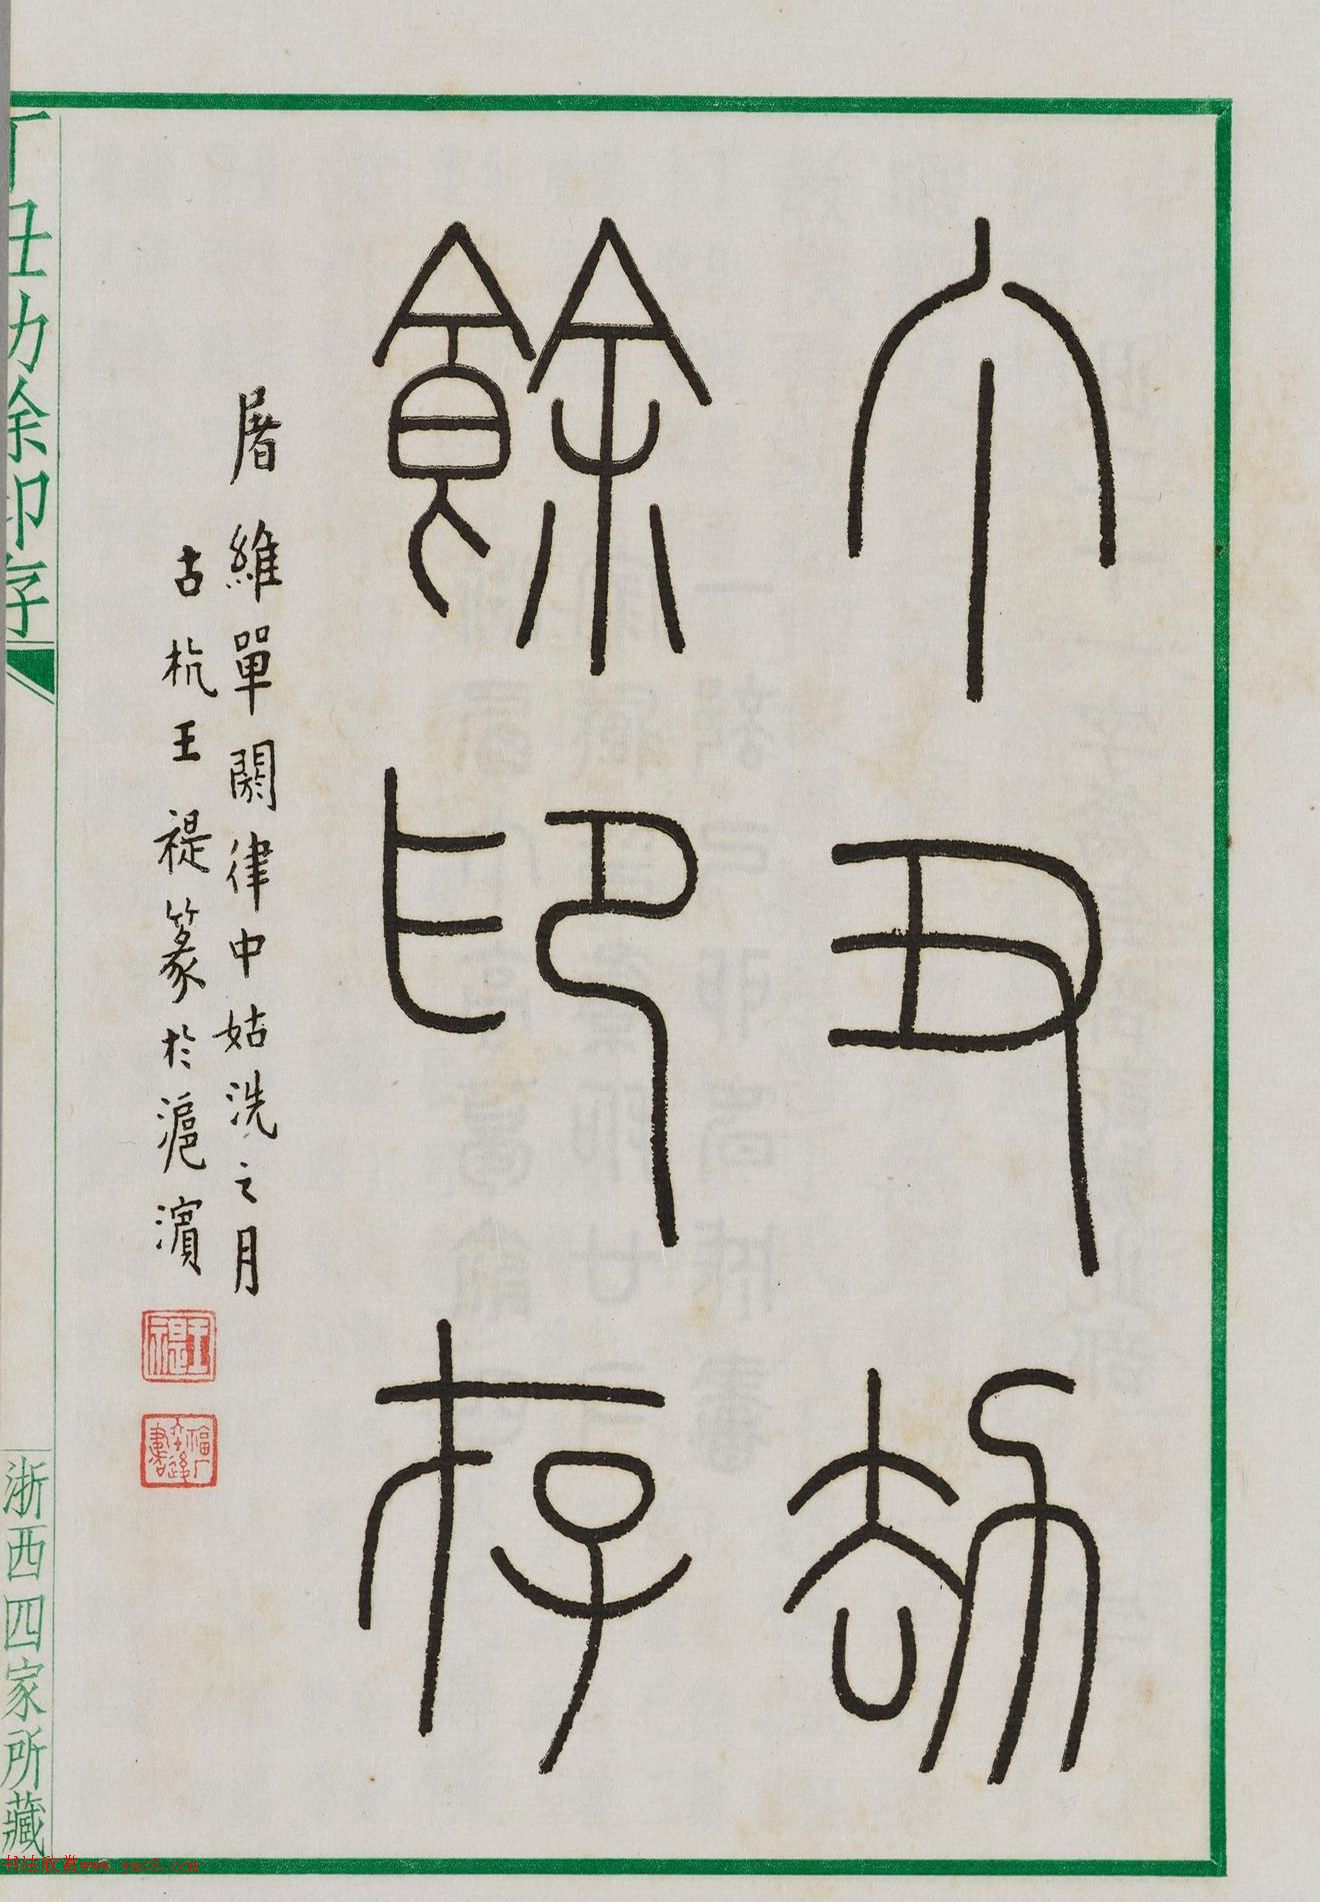 丁丑劫
餘印存
屠維單閼律中姑洗之月
古杭王禔篆於滬濱
王禔
福厂六十後書
丁丑劫余印存
浙西四家所藏
书法欣赏www.yac8.com